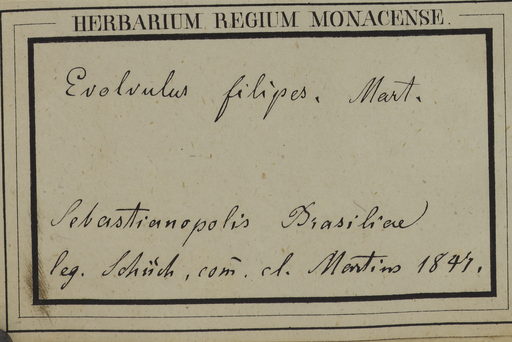 HERBARIUM REGIUM MONACENSE.
Evolvulus filipes. Mart.
Sebastianopolis Brasiliae
leg. Schüch, com̄. cl. Martius 1847.